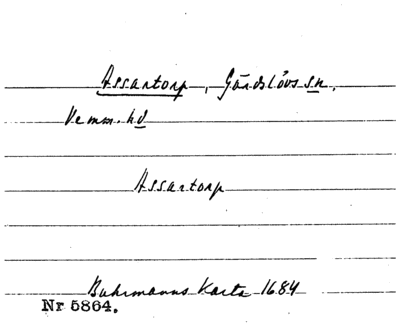 Assartorp, Gärdslövs sn.
Vemm. hd
Assartorp
Buhrmanns Karta 1684
Nr 5864.